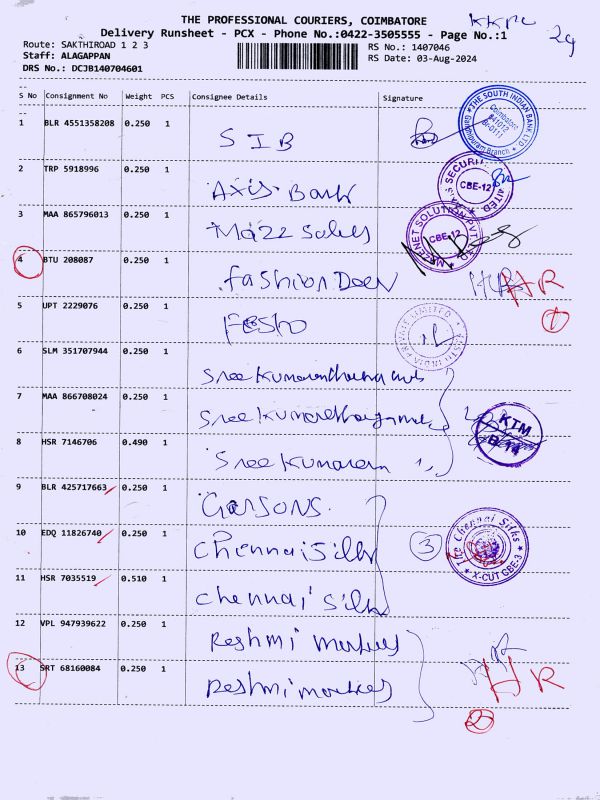 THE PROFESSIONAL COURIERS, COIMBATORE
KKPC
Delivery Runsheet - PCX - Phone No.:0422-3505555 - Page No.:1
29
Route: SAKTHIROAD 1 2 3
RS No.: 1407046
Staff: ALAGAPPAN
RS Date: 03-Aug-2024
DRS No.: DCJB140704601
S No Consignment No Weight PCS Consignee Details Signature
1 BLR 4551358208 0.250 1 SIB
THE SOUTH INDIAN BANK LTD
Coimbatore
641012
Br-0111
Gandhipuram Branch
2 TRP 5918996 0.250 1 Axis Bank
SECURI
CBE-12
3 MAA 865796013 0.250 1 Mazz Sales
NET SOLUTION PVT
CBE-12
4 BTU 208087 0.250 1 fashion Deen HR
1
5 UPT 2229076 0.250 1 Festo
INDIA PRIVATE LIMITED
6 SLM 351707944 0.250 1 Sree Kumaran
7 MAA 866708024 0.250 1 Sree Kumaran
KTM
8 HSR 7146706 0.490 1 Sree Kumaran
9 BLR 425717663 0.250 1 Garsons.
10 EDQ 11826740 0.250 1 Chennai Silk
3
The Chennai Silks
X-CUT CBE-3
11 HSR 7035519 0.510 1 Chennai Silk
12 VPL 947939622 0.250 1 Reshmi
13 SRT 68160084 0.250 1 Reshmi
HR
2